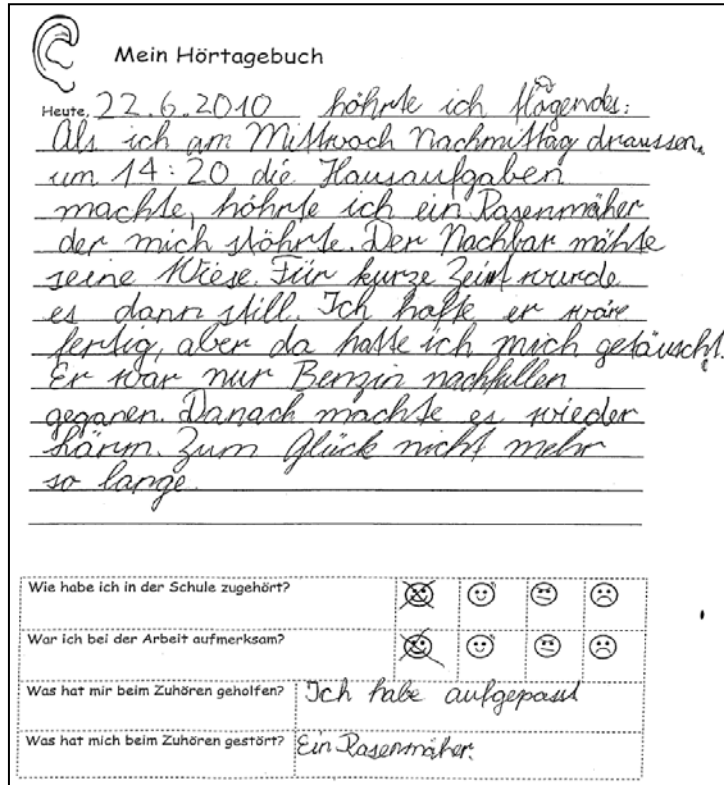 Mein Hörtagebuch
Heute, 22.6.2010 höhrte ich flogendes:
Als ich am Mittwoch Nachmittag draussen,
um 14:20 die Hausaufgaben
machte, höhrte ich ein Rasenmäher
der mich stöhrte. Der Nachbar mähte
seine Wiese. Für kurze Zeit wurde
es dann still. Ich hafte er wäre
fertig, aber da hatte ich mich getäuscht.
Er war nur Benzin nachfüllen
geganen. Danach machte es wieder
Lärm. Zum Glück nicht mehr
so lange.
Wie habe ich in der Schule zugehört?
War ich bei der Arbeit aufmerksam?
Was hat mir beim Zuhören geholfen? Ich habe aufgepasst
Was hat mich beim Zuhören gestört? Ein Rasenmäher.